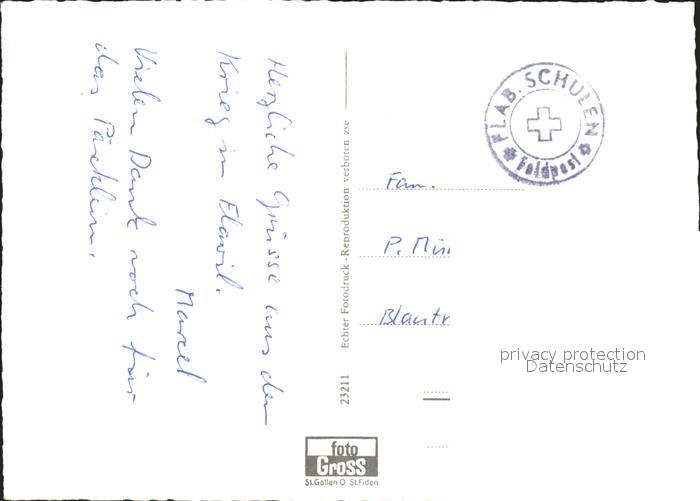 Herzliche Grüsse aus dem
Krieg in Flawil.
Marcel
Vielen Dank noch für
das Päcklein.
Echter Fotodruck - Reproduktion verboten zsc
23211
foto
GROSS
St.Gallen O St.Fiden
FLAB. SCHULEN
Feldpost
Fam.
P.
privacy protection
Datenschutz